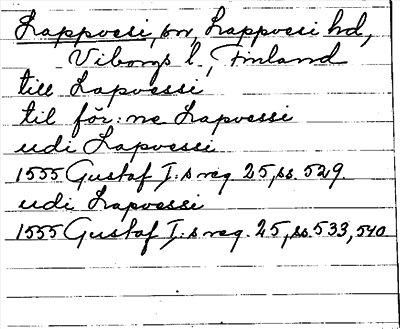 Lappvesi, sn, Lappvesi hd,
Viborgs l., Finland
till Lapvessi
til för:ne Lapvessi
udi Lapvessi
1555 Gustaf I:s reg. 25, ss. 529
udi Lapvessi
1555 Gustaf I:s reg. 25, ss. 533, 540